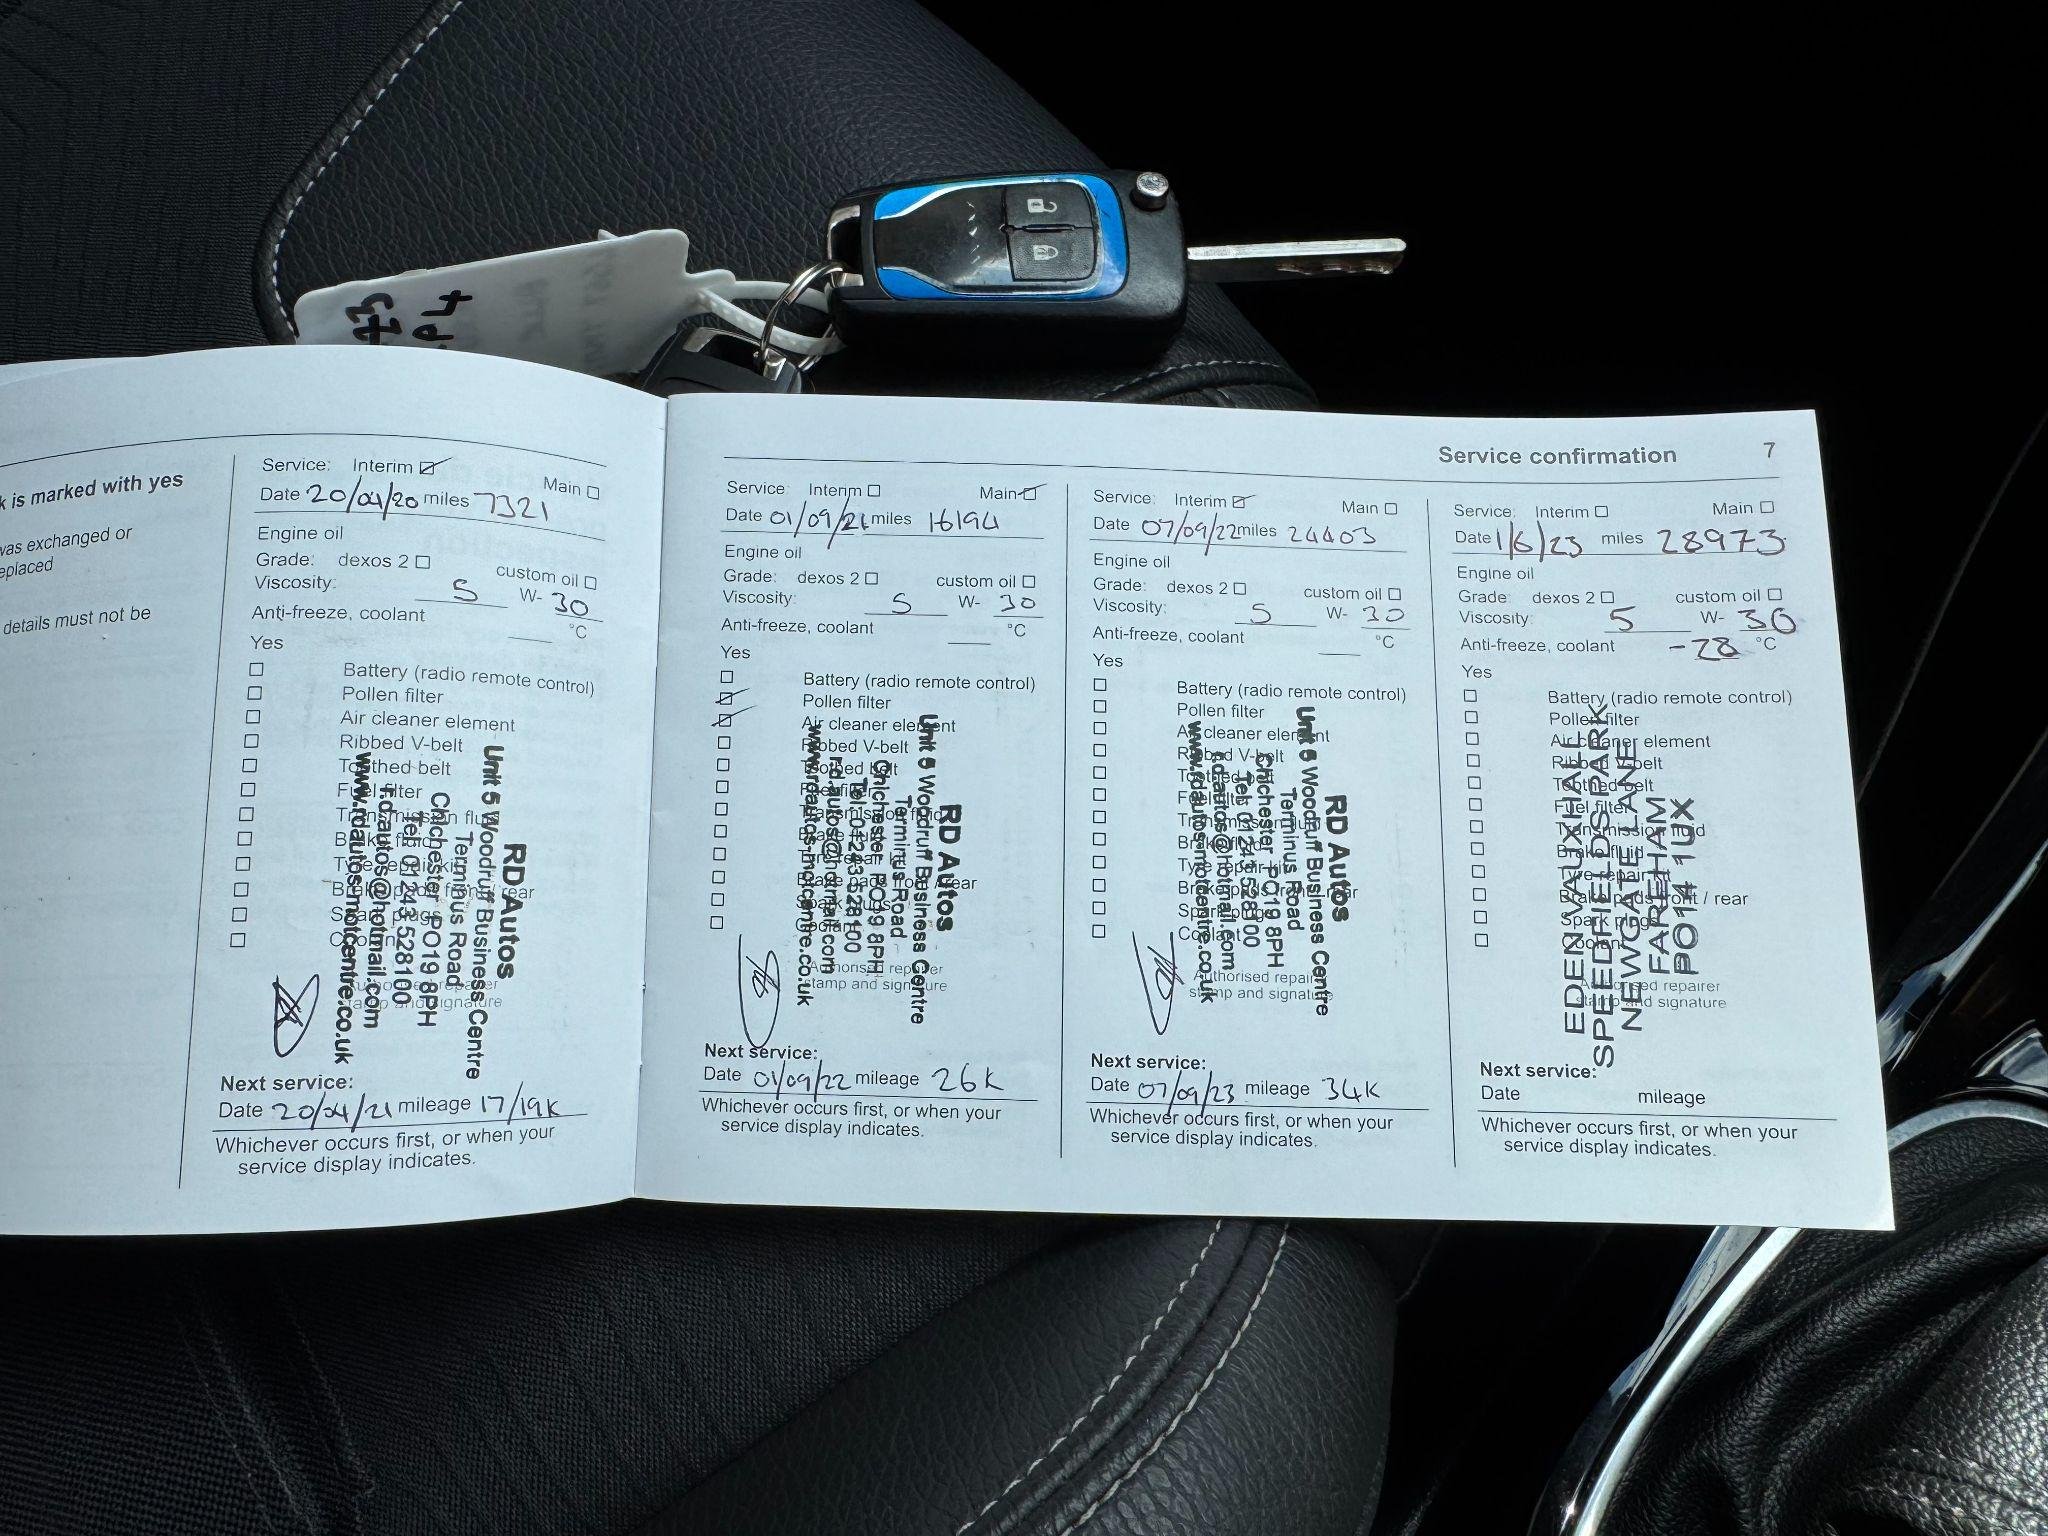 73
P4
k is marked with yes
was exchanged or
eplaced
details must not be
Service: Interim Main
Date 20/04/20 miles 7321
Engine oil
Grade: dexos 2 custom oil
Viscosity: 5 W- 30
Anti-freeze, coolant °C
Yes
Battery (radio remote control)
Pollen filter
Air cleaner element
Ribbed V-belt
Toothed belt
Fuel filter
Transmission fluid
Brake fluid
Tyre repair kit
Brake pads front / rear
Spark plugs
Coolant
Authorised repairer
stamp and signature
RD Autos
Unit 5 Woodruff Business Centre
Terminus Road
Chichester PO19 8PH
Tel: 01243 528100
r.d.autos@hotmail.com
www.rdautos-motcentre.co.uk
Next service:
Date 20/04/21 mileage 17/19K
Whichever occurs first, or when your
service display indicates.
Service confirmation 7
Service: Interim Main
Date 01/09/21 miles 16194
Engine oil
Grade: dexos 2 custom oil
Viscosity: 5 W- 30
Anti-freeze, coolant °C
Yes
Battery (radio remote control)
Pollen filter
Air cleaner element
Ribbed V-belt
Toothed belt
Fuel filter
Transmission fluid
Brake fluid
Tyre repair kit
Brake pads front / rear
Spark plugs
Coolant
Authorised repairer
stamp and signature
RD Autos
Unit 5 Woodruff Business Centre
Terminus Road
Chichester PO19 8PH
Tel: 01243 528100
r.d.autos@hotmail.com
www.rdautos-motcentre.co.uk
Next service:
Date 01/09/22 mileage 26K
Whichever occurs first, or when your
service display indicates.
Service: Interim Main
Date 07/09/22 miles 24403
Engine oil
Grade: dexos 2 custom oil
Viscosity: 5 W- 30
Anti-freeze, coolant °C
Yes
Battery (radio remote control)
Pollen filter
Air cleaner element
Ribbed V-belt
Toothed belt
Fuel filter
Transmission fluid
Brake fluid
Tyre repair kit
Brake pads front / rear
Spark plugs
Coolant
Authorised repairer
stamp and signature
RD Autos
Unit 5 Woodruff Business Centre
Terminus Road
Chichester PO19 8PH
Tel: 01243 528100
r.d.autos@hotmail.com
www.rdautos-motcentre.co.uk
Next service:
Date 07/09/23 mileage 34K
Whichever occurs first, or when your
service display indicates.
Service: Interim Main
Date 1/6/23 miles 28973
Engine oil
Grade: dexos 2 custom oil
Viscosity: 5 W- 30
Anti-freeze, coolant -28 °C
Yes
Battery (radio remote control)
Pollen filter
Air cleaner element
Ribbed V-belt
Toothed belt
Fuel filter
Transmission fluid
Brake fluid
Tyre repair kit
Brake pads front / rear
Spark plugs
Coolant
Authorised repairer
stamp and signature
EDEN VAUXHALL
SPEEDFIELDS PARK
NEWGATE LANE
FAREHAM
PO14 1UX
Next service:
Date mileage
Whichever occurs first, or when your
service display indicates.